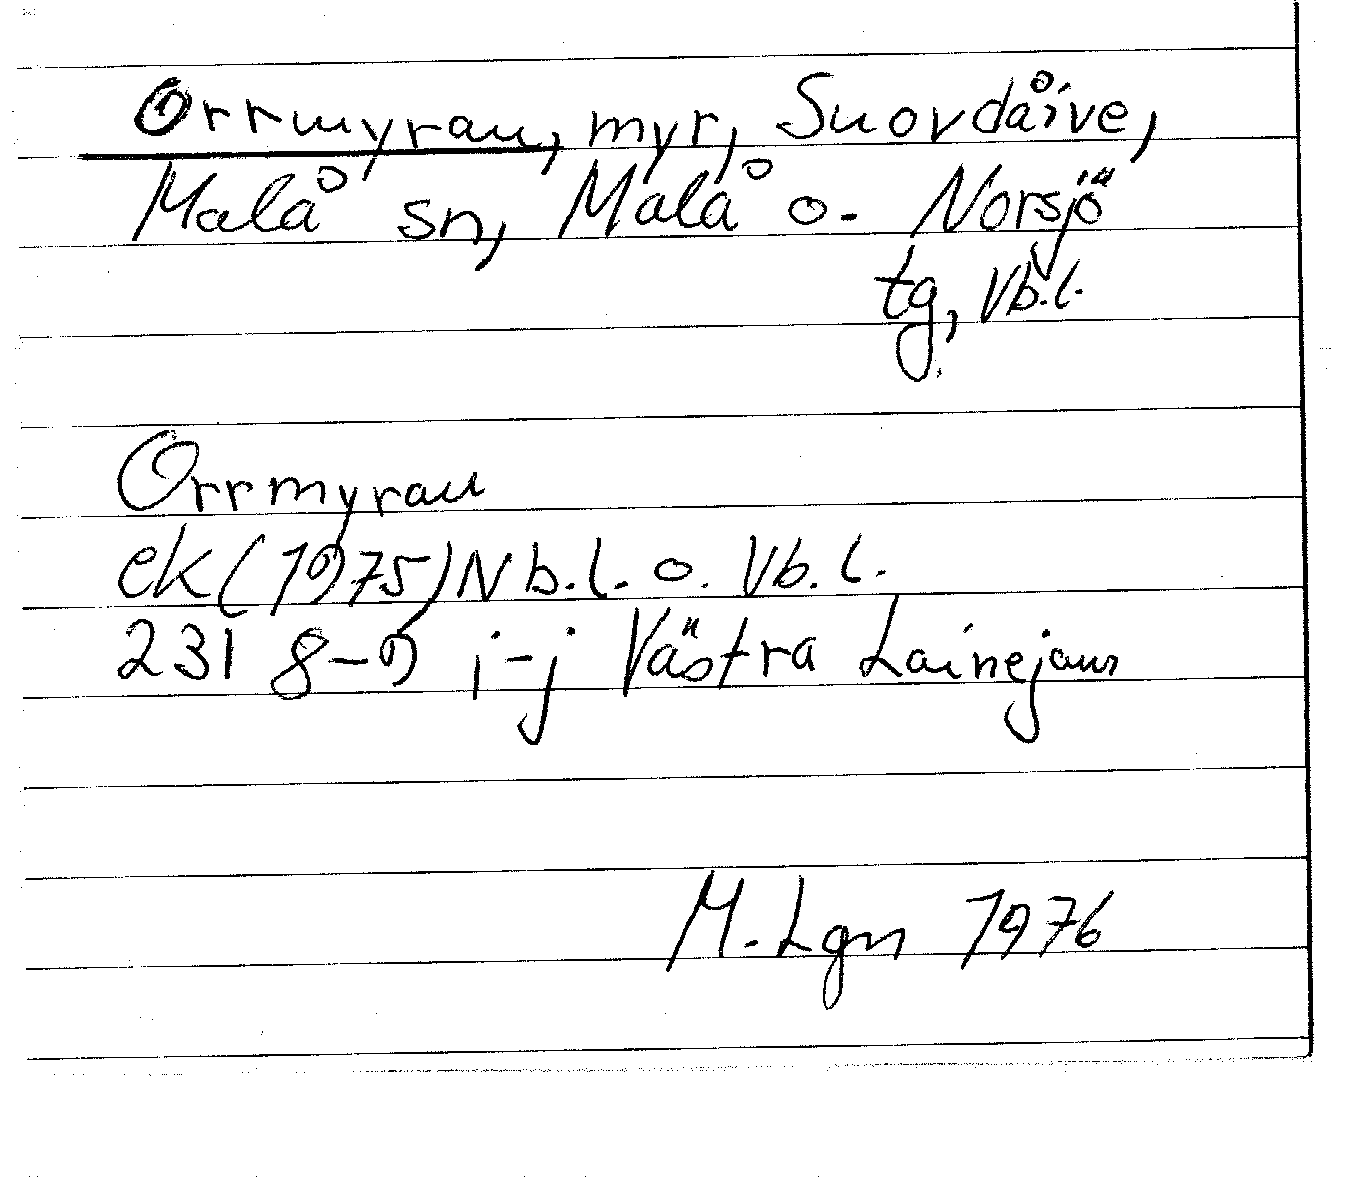 Orrmyran, myr, Suovdåive,
Malå sn, Malå o. Norsjö
tg, Vb.l.
Orrmyran
ek (1975) Nb.l. o. Vb.l.
231 8-9 i-j Västra Lainejaur
M. Lgn 1976